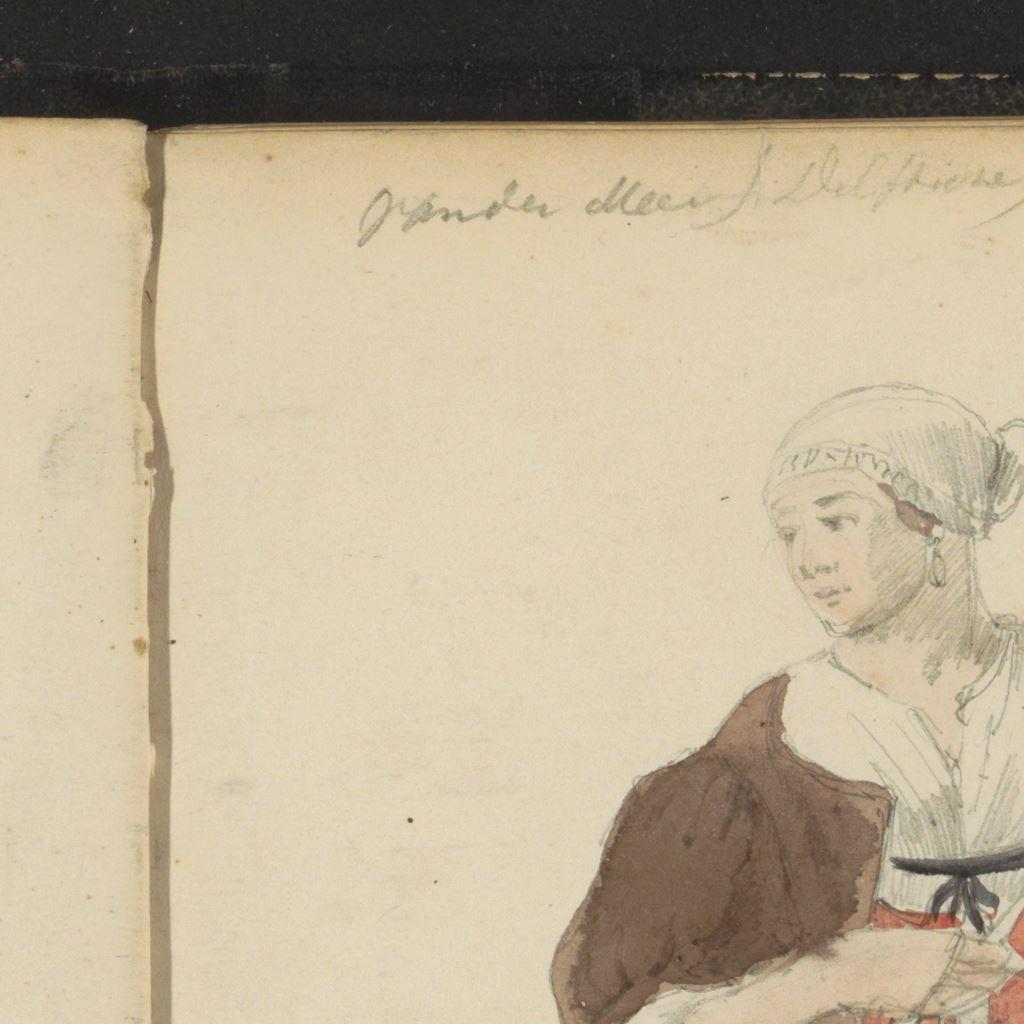 van der Meer / Delftsche